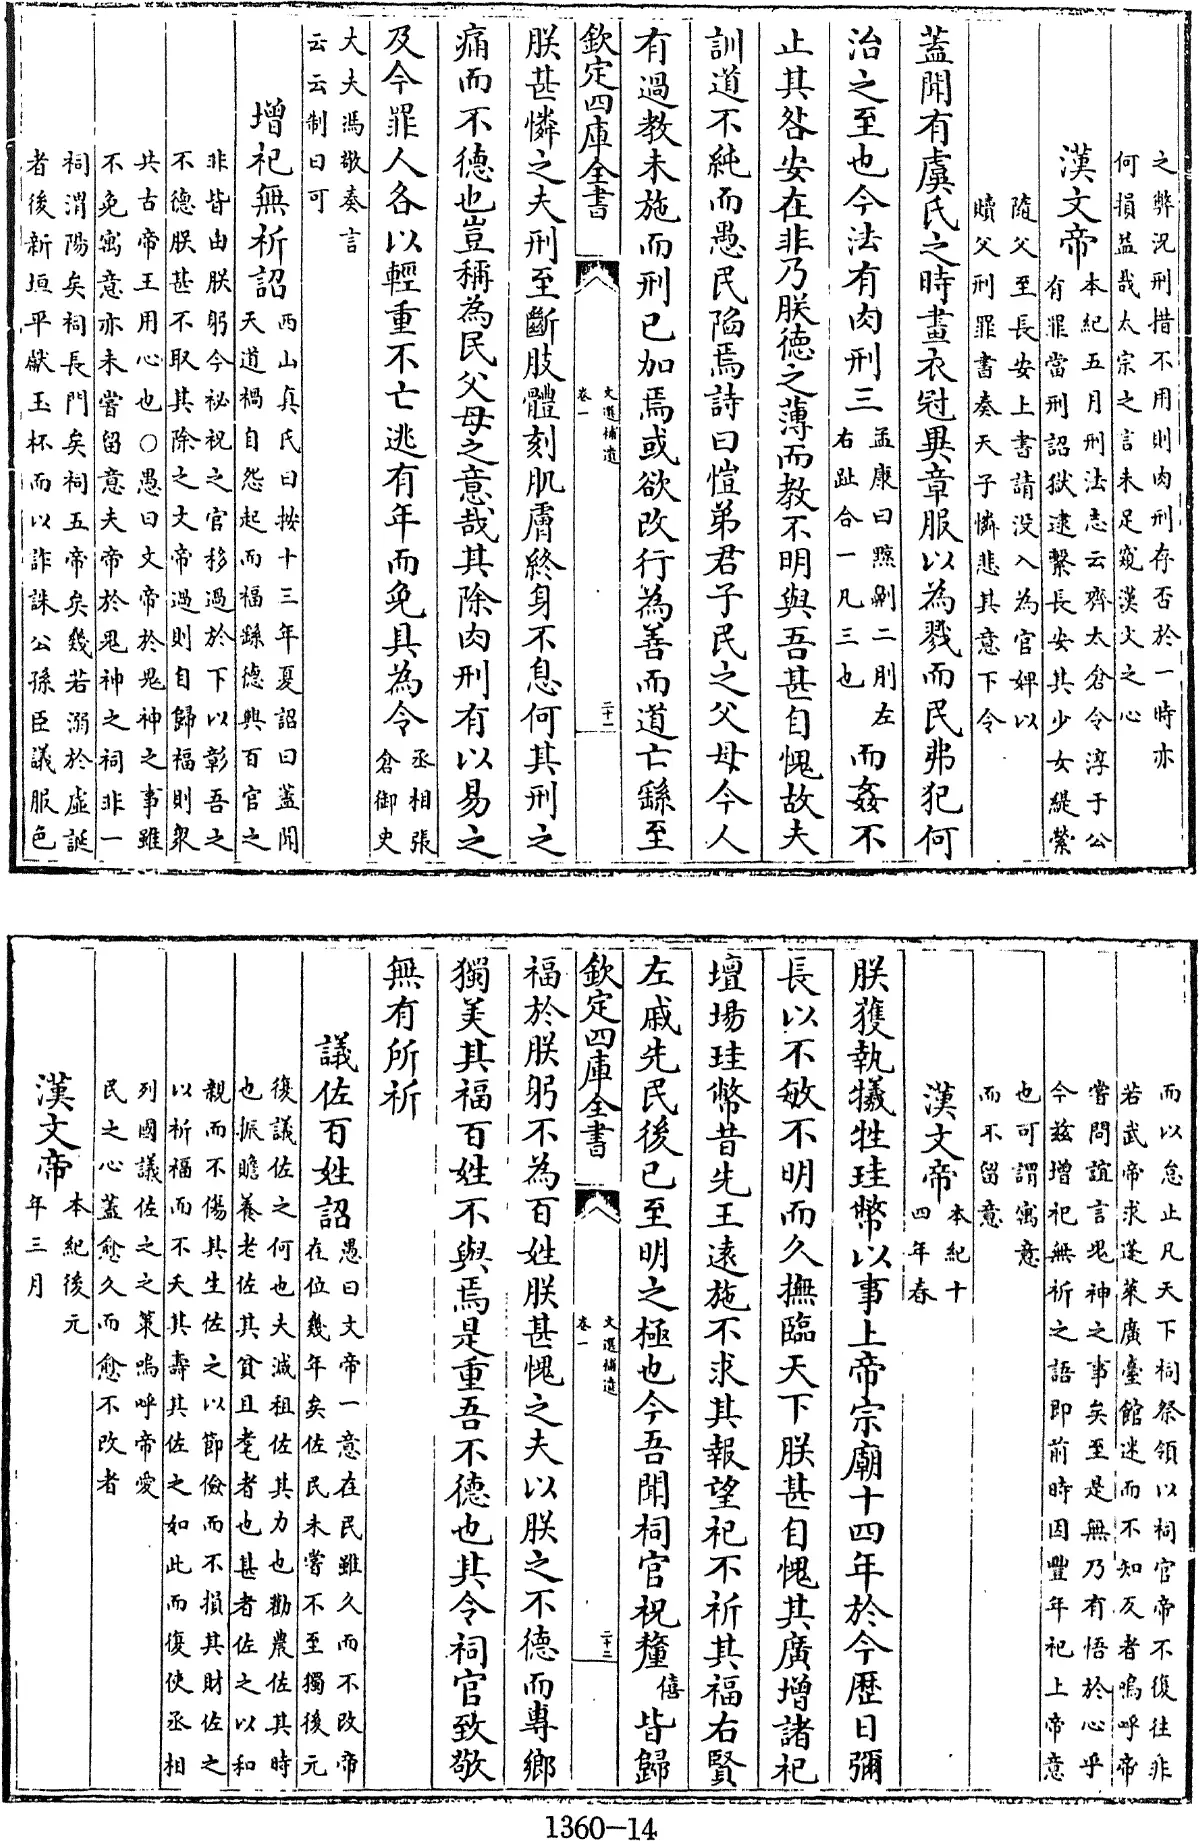 之弊況刑措不用則肉刑存否於一時亦
何損益哉太宗之言未足窺漢文之心
漢文帝
本紀五月刑法志云齊太倉令淳于公
有罪當刑詔獄逮繫長安其少女緹縈
隨父至長安上書請没入為官婢以
贖父刑罪書奏天子憐悲其意下令
蓋聞有虞氏之時畫衣冠異章服以為戮而民弗犯何
治之至也今法有肉刑三
孟康曰黥劓二刖左
右趾合一凡三也
而姦不
止其咎安在非乃朕德之薄而教不明與吾甚自愧故夫
訓道不純而愚民陷焉詩曰愷弟君子民之父母今人
有過教未施而刑已加焉或欲改行為善而道亡繇至
欽定四庫全書
文選補遺
卷一
二十二
朕甚憐之夫刑至斷肢體刻肌膚終身不息何其刑之
痛而不德也豈稱為民父母之意哉其除肉刑有以易之
及今罪人各以輕重不亡逃有年而免具為令
丞相張
倉御史
大夫馮敬奏言
云云制曰可
增祀無祈詔
西山真氏曰按十三年夏詔曰蓋聞
天道禍自怨起而福繇德興百官之
非皆由朕躬今祕祝之官移過於下以彰吾之
不德朕甚不取其除之文帝過則自歸福則衆
共古帝王用心也○愚曰文帝於鬼神之事雖
不免寓意亦未嘗留意夫帝於鬼神之祠非一
祠渭陽矣祠長門矣祠五帝矣幾若溺於虛誕
者後新垣平獻玉杯而以詐誅公孫臣議服色
而以怠止凡天下祠祭領以祠官帝不復往非
若武帝求蓬萊廣臺館迷而不知反者嗚呼帝
嘗問誼言鬼神之事矣至是無乃有悟於心乎
今兹增祀無祈之語即前時因豐年祀上帝意
也可謂寓意
而不留意
漢文帝
本紀十
四年春
朕獲執犧牲珪幣以事上帝宗廟十四年於今歷日彌
長以不敏不明而久撫臨天下朕甚自愧其廣增諸祀
壇場珪幣昔先王遠施不求其報望祀不祈其福右賢
左戚先民後已至明之極也今吾聞祠官祝釐
僖
皆歸
欽定四庫全書
文選補遺
卷一
二十三
福於朕躬不為百姓朕甚愧之夫以朕之不德而專鄉
獨美其福百姓不與焉是重吾不德也其令祠官致敬
無有所祈
議佐百姓詔
愚曰文帝一意在民雖久而不改帝
在位幾年矣佐民未嘗不至獨後元
復議佐之何也夫減租佐其力也勸農佐其時
也振贍養老佐其貧且耄者也甚者佐之以和
親而不傷其生佐之以節儉而不損其財佐之
以祈福而不夭其壽其佐之如此而復使丞相
列國議佐之之策嗚呼帝愛
民之心蓋愈久而愈不改者
漢文帝
本紀後元
年三月
1360-14